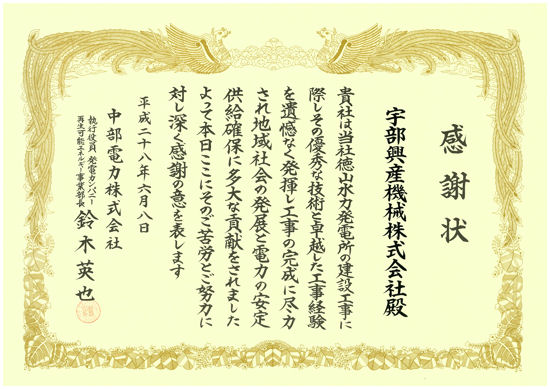 感謝状
宇部興産機械株式会社殿
貴社は当社徳山水力発電所の建設工事に
際しその優秀な技術と卓越した工事経験
を遺憾なく発揮し工事の完成に尽力
され地域社会の発展と電力の安定
供給確保に多大な貢献をされました
よって本日ここにそのご苦労とご努力に
対し深く感謝の意を表します
平成二十八年六月八日
中部電力株式会社
執行役員 発電カンパニー
再生可能エネルギー事業部長
鈴木英也